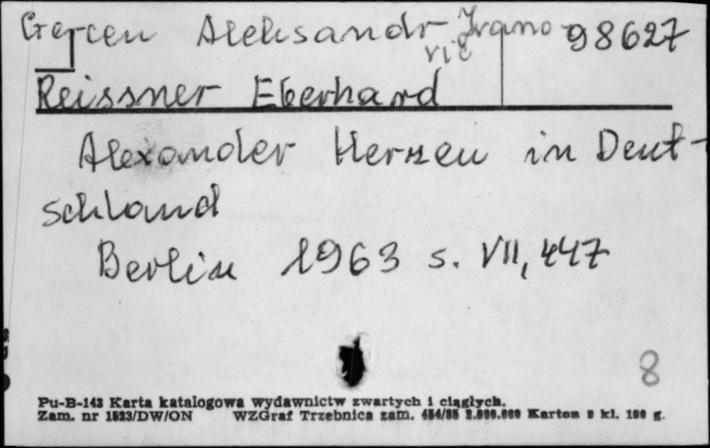 Gercen Aleksandr Ivano- 98627
vič
Reissner Eberhard
Alexander Herzen in Deut-
schland
Berlin 1963 s. VII, 447
8
Pu-B-143 Karta katalogowa wydawnictw zwartych i ciągłych.
Zam. nr 1523/DW/ON WZGraf Trzebnica zam. 454/85 2.000.000 Karton kl. 180 g.